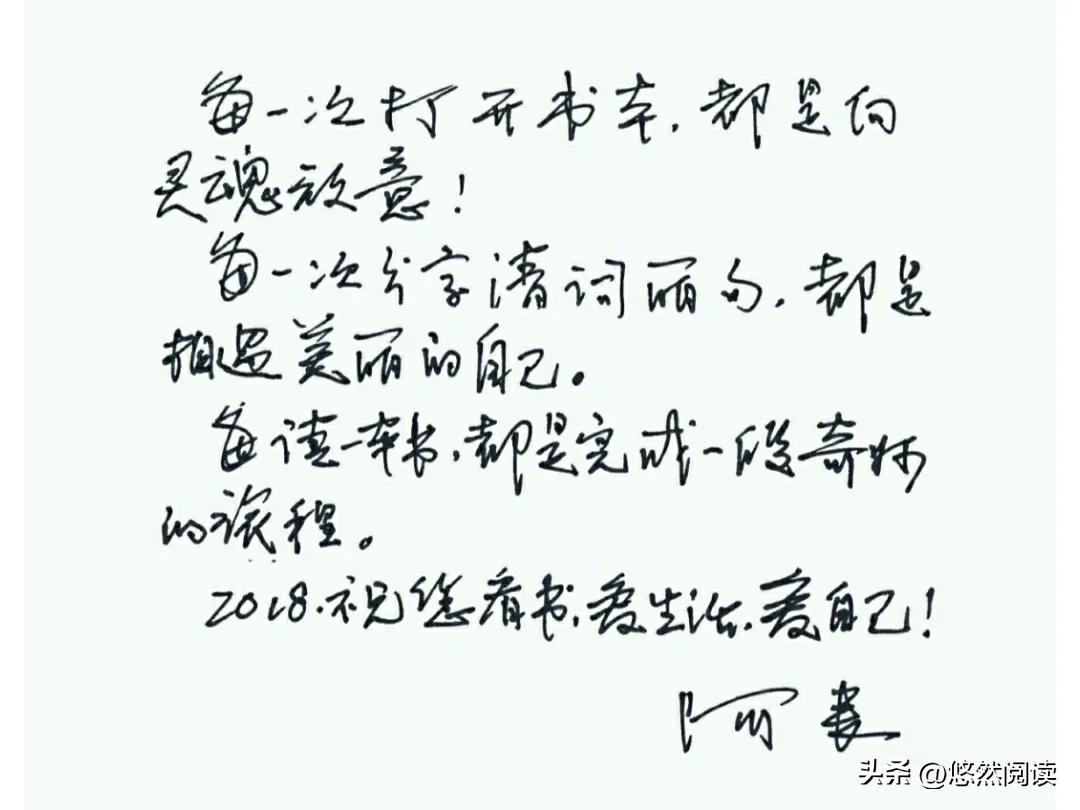 每一次打开书本，都是向
灵魂致意！
每一次分享清词丽句，都是
相遇美丽的自己。
每读一本书，都是完成一段奇妙
的旅程。
2018.祝您看书，爱生活，爱自己！
阿袭
头条 @悠然阅读